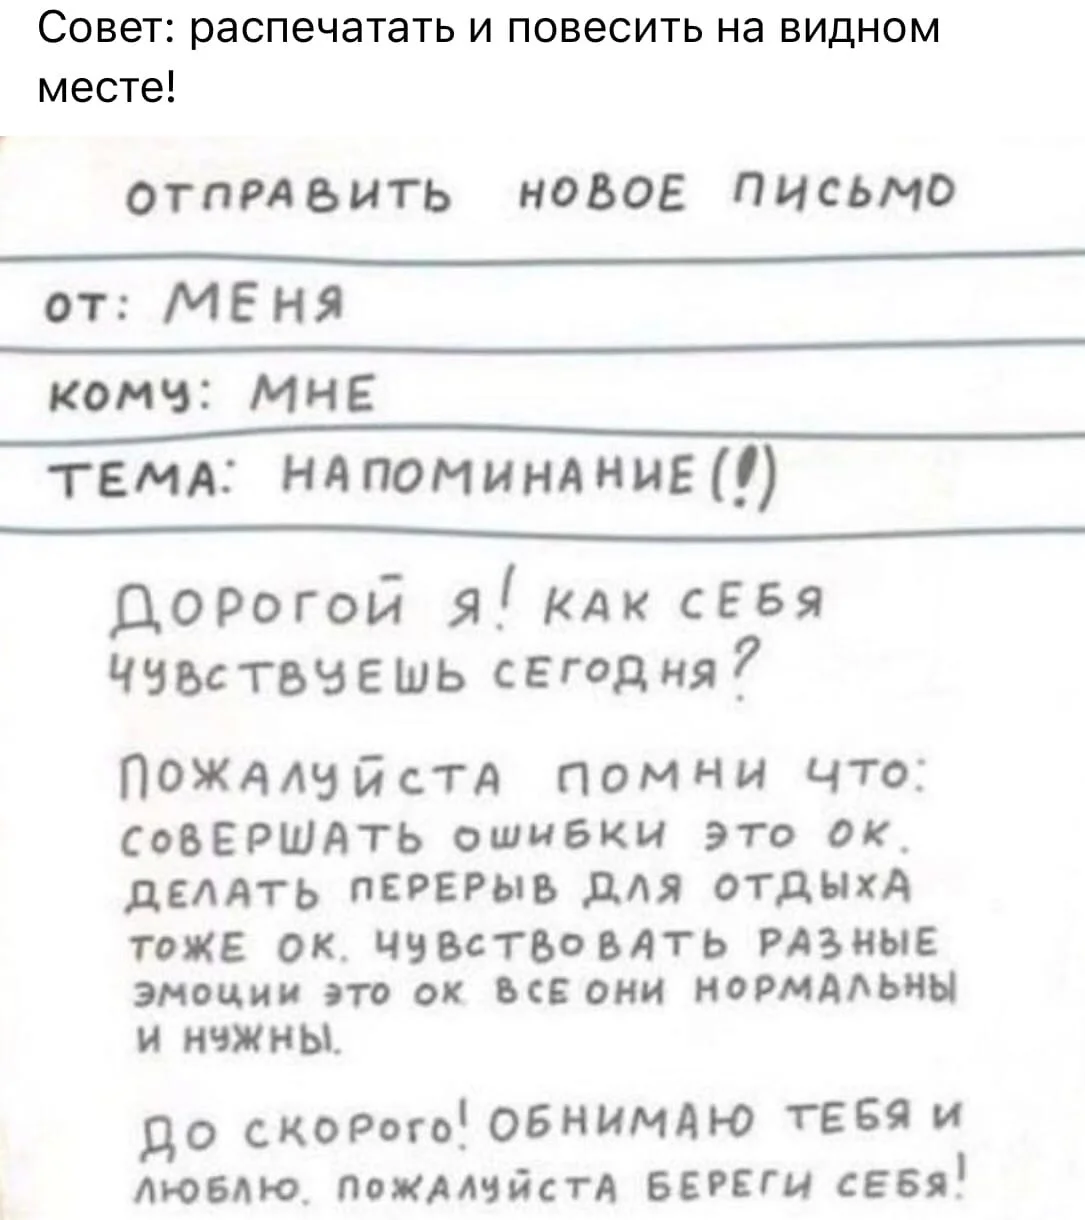 Совет: распечатать и повесить на видном
месте!
ОТПРАВИТЬ НОВОЕ ПИСЬМО
ОТ: МЕНЯ
КОМУ: МНЕ
ТЕМА: НАПОМИНАНИЕ (!)
ДОРОГОЙ Я! КАК СЕБЯ
ЧУВСТВУЕШЬ СЕГОДНЯ?
ПОЖАЛУЙСТА ПОМНИ ЧТО:
СОВЕРШАТЬ ОШИБКИ ЭТО ОК.
ДЕЛАТЬ ПЕРЕРЫВ ДЛЯ ОТДЫХА
ТОЖЕ ОК. ЧУВСТВОВАТЬ РАЗНЫЕ
ЭМОЦИИ ЭТО ОК ВСЕ ОНИ НОРМАЛЬНЫ
И НУЖНЫ.
ДО СКОРОГО! ОБНИМАЮ ТЕБЯ И
ЛЮБЛЮ. ПОЖАЛУЙСТА БЕРЕГИ СЕБЯ!